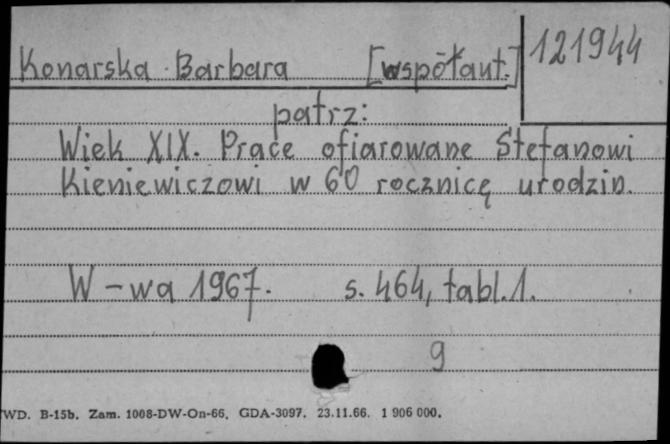 Konarska Barbara [współaut.] 121944
patrz:
Wiek XIX. Prace ofiarowane Stefanowi
Kieniewiczowi w 60 rocznicę urodzin.
W-wa 1967. s. 464, tabl. 1.
9
WD. B-15b. Zam. 1008-DW-On-66. GDA-3097. 23.11.66. 1 906 000.